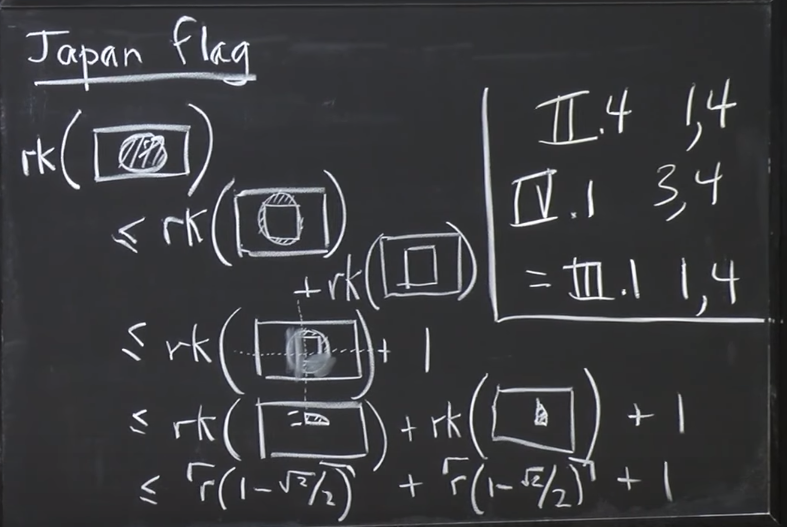 Japan flag
rk( )
≤ rk( )
+ rk( )
≤ rk( ) + 1
≤ rk( ) + rk( ) + 1
≤ ⌈r(1-√2/2)⌉ + ⌈r(1-√2/2)⌉ + 1
II.4 1,4
IV.1 3,4
= III.1 1,4